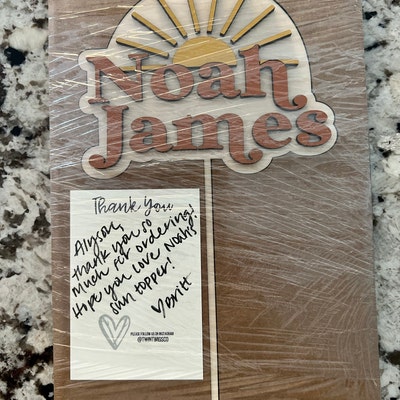 Noah
James
Thank You
Alyson,
thank you so
much for ordering!
Hope you love Noah's
sun topper!
♡Britt
PLEASE FOLLOW US ON INSTAGRAM!